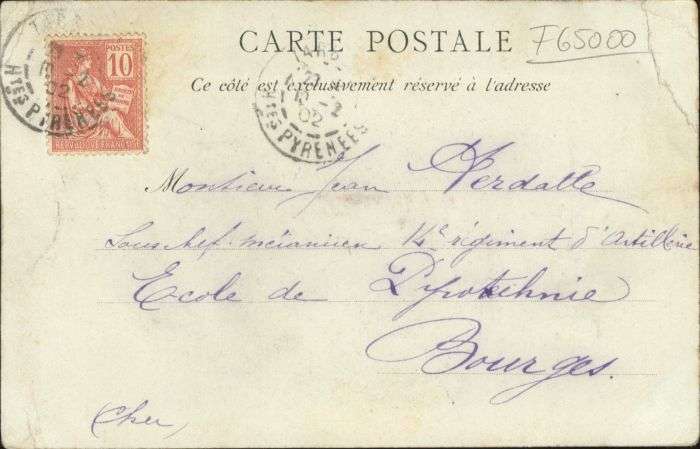 CARTE POSTALE
F65000
Ce côté est exclusivement réservé à l'adresse
POSTES
10
RÉPUBLIQUE FRANÇAISE
TAR
02
Htes PYRENEES
TARB
02
Htes PYRENEES
Monsieur Jean Verdalle
Sous chef-mécanicien 14e régiment d'Artillerie
Ecole de Pyrotechnie
Bourges.
Cher,